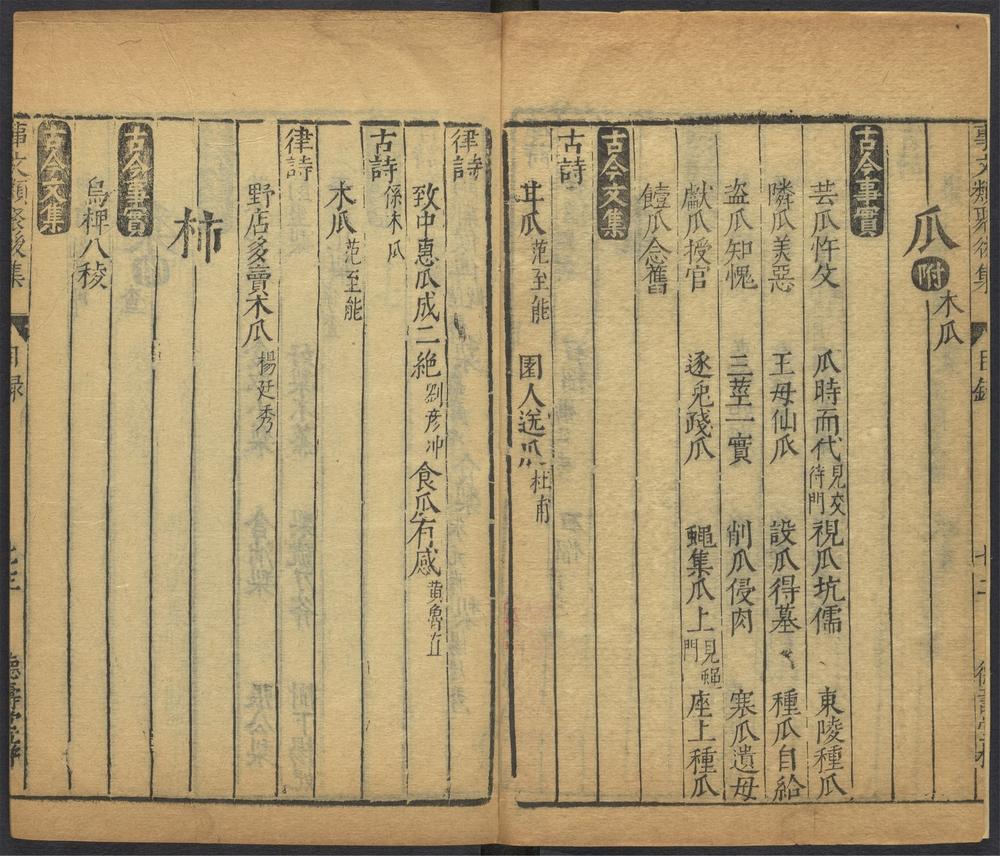 事文類聚後集 目錄
瓜 附 木瓜
古今事實
芸瓜忤父 瓜時而代 見交待門 視瓜坑儒 東陵種瓜
隣瓜美惡 王母仙瓜 設瓜得墓 種瓜自給
盗瓜知愧 三莖一實 削瓜侵肉 寨瓜遺母
獻瓜授官 逐兎踐瓜 蠅集瓜上 見蠅門 座上種瓜
饐瓜念舊
古今文集
古詩
甘瓜 范至能 園人送瓜 杜甫
律詩
致中惠瓜成二絶 劉彦冲 食瓜有感 黄魯直
古詩 係木瓜
木瓜 范至能
律詩
野店多賣木瓜 楊廷秀
柿
古今事實
烏椑八稜
古今文集
事文類聚後集 目録